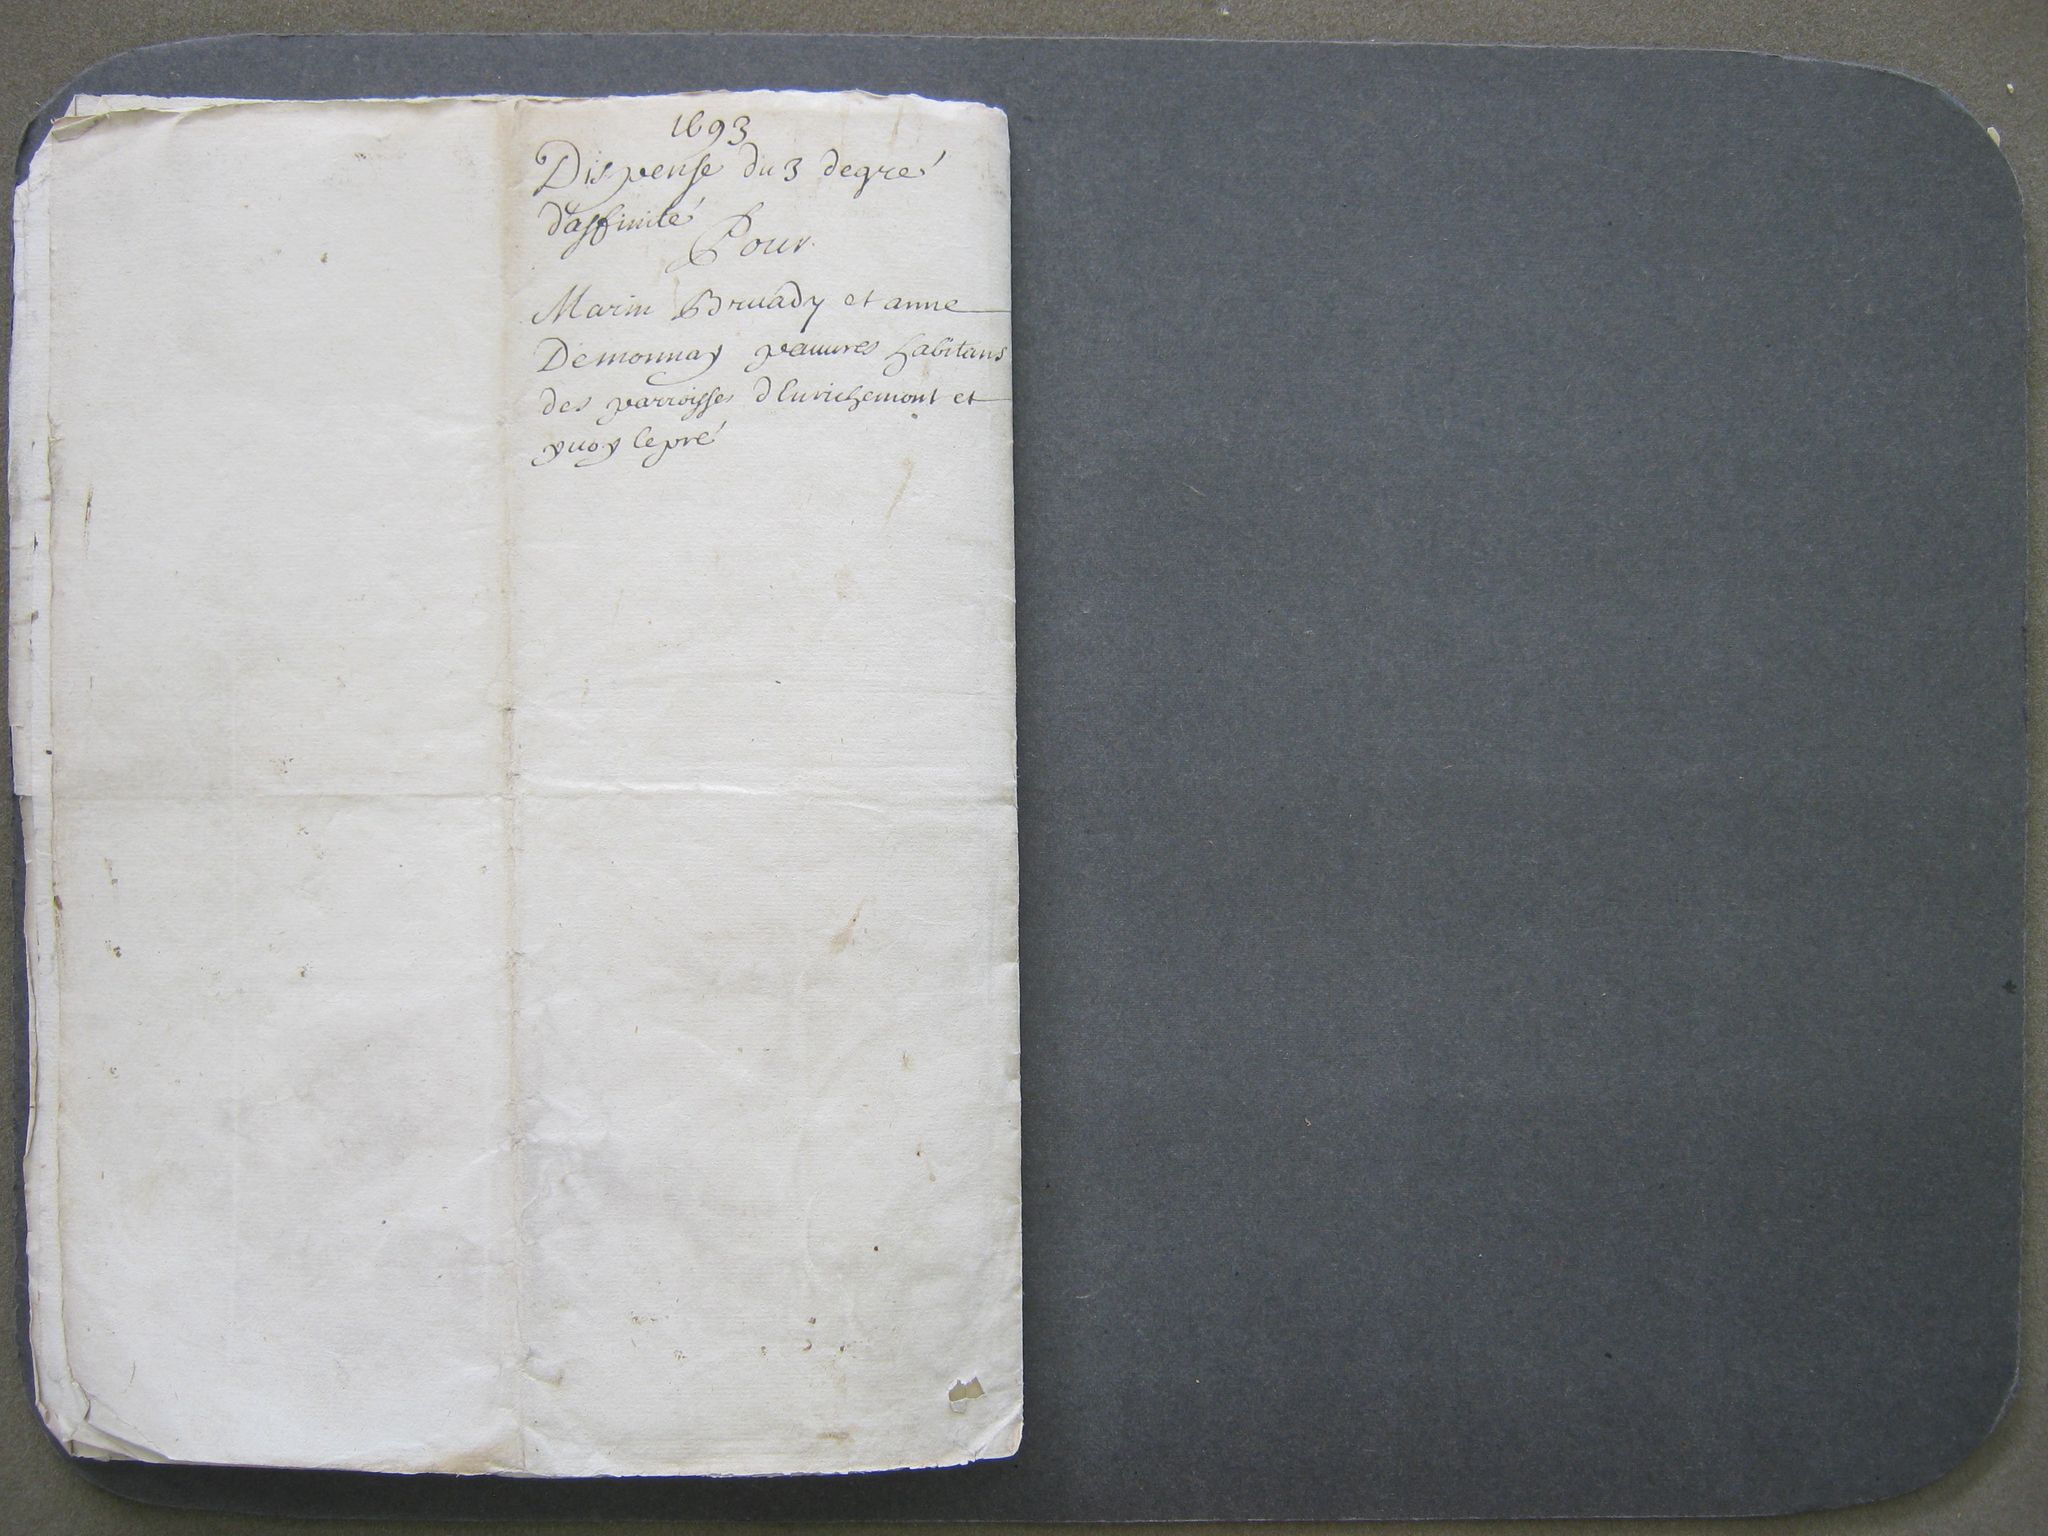 1693
Dispense du 3 degré
daffinité
Pour
Marin Bruady et anne
Demonnay pauures habitans
des parroisses dEnrichemont et
yuoy lepré